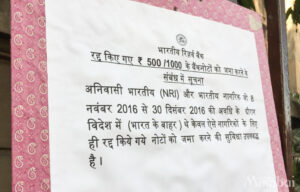 भारतीय रिज़र्व बैंक
रद्द किए गए ₹ 500 /1000 के बैंकनोटों को जमा करने के
संबंध में सूचना
अनिवासी भारतीय (NRI) और भारतीय नागरिक जो 8
नवंबर 2016 से 30 दिसंबर 2016 की अवधि के दौरान
विदेश में (भारत के बाहर) थे केवल ऐसे नागरिकों के लिए
ही रद्द किये गये नोटों को जमा करने की सुविधा उपलब्ध
है ।